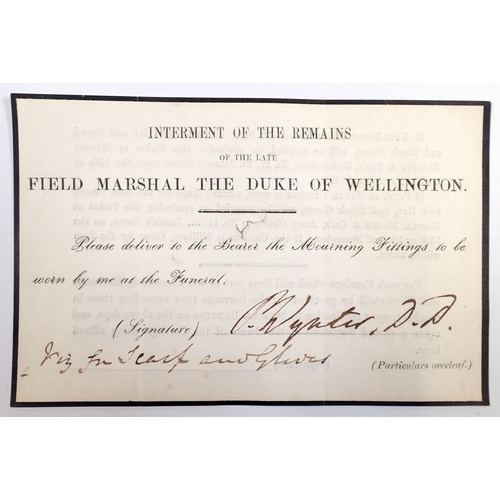 INTERMENT OF THE REMAINS
OF THE LATE
FIELD MARSHAL THE DUKE OF WELLINGTON.
Please deliver to the Bearer the Mourning Fittings to be
worn by me at the Funeral.
(Signature) P. Wynter, D.D.
Viz for Scarf and Gloves
(Particulars overleaf.)